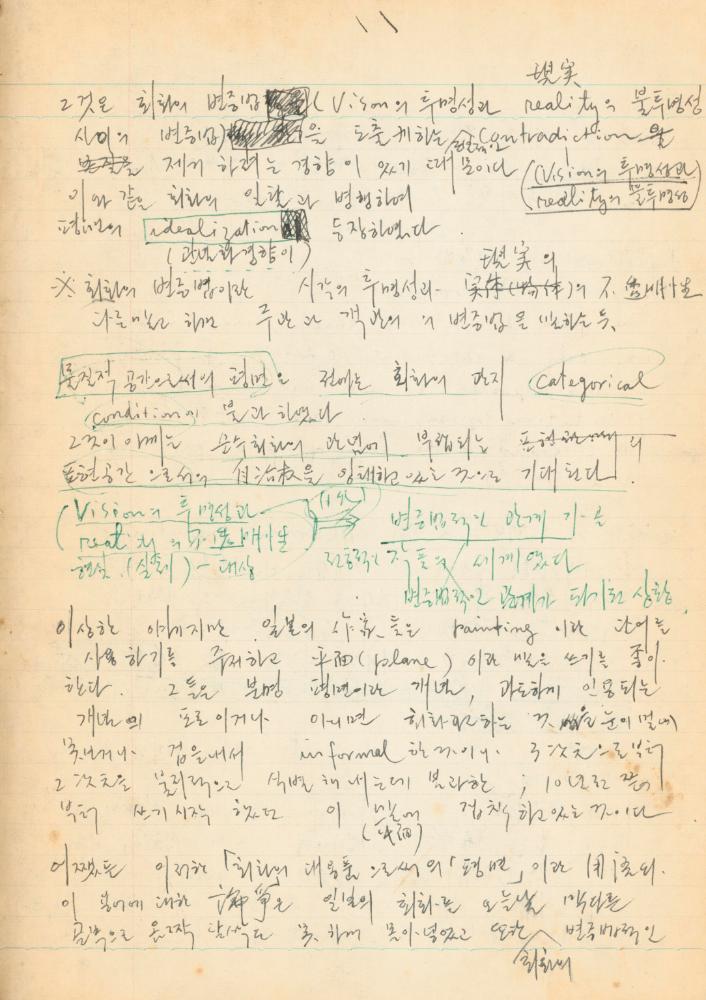 現実
그것은 회화의 변증법 (Vision의 투명성과 reality의 불투명성
사이의 변증법) 을 도출케하는 Contradiction을
제거 하려는 경향이 있기 때문이다 (Vision의 투명성과
reality의 불투명성)
이와 같은 회화의 일환과 병행하여
평면의 idealization 등장하였다
(관념화경향이)
現実의
※ 회화의 변증법이란 시각의 투명성과 実体(物体)의 不透明性
다른말로 하면 주관과 객관의 변증법을 말하는 듯.
물질적 공간으로써의 평면은 전에는 회화의 단지 categorical
condition에 불과하였다
그것이 이제는 순수회화의 관념에 부합되는 표현 의
표현공간으로서의 自治权을 잉태하고 있는 것으로 기대된다.
(Vision의 투명성과 변증법적인 관계가
reality의 不透明性)
현실 (실존) - 대상 전통적인 작품의 세계였다
변증법적인 관계가 파기된 상황
이상한 이야기지만 일본의 作家들은 painting이란 단어를
사용하기를 주저하고 平面(plane)이란 말을 쓰기를 좋아
한다. 그들은 분명 평면이란 개념, 과도하게 인용되는
개념의 포로이거나 아니면 회화라고하는 것 눈이 멀어
못보거나 겁을내서 informal한것이나 3次元으로부터
2次元을 물리적으로 식별해 내는데 불과한; 10년전
부터 쓰기 시작했던 이 말에 집착하고있는것이다
(平面)
어쨌든 이러한 「회화의 대용품으로써의「평면」이란 用語의.
이 용어에 대한 論争은 일본의 회화를 오늘날 막다른
골목으로 옴짝 달싹도 못하게 몰아넣었고 또한 변증법적인
회화의